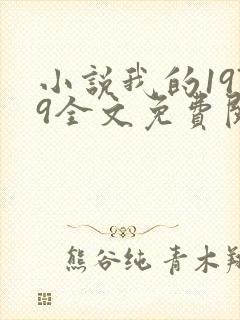 小說我的197
9全文免費閱
熊谷纯 青木翔